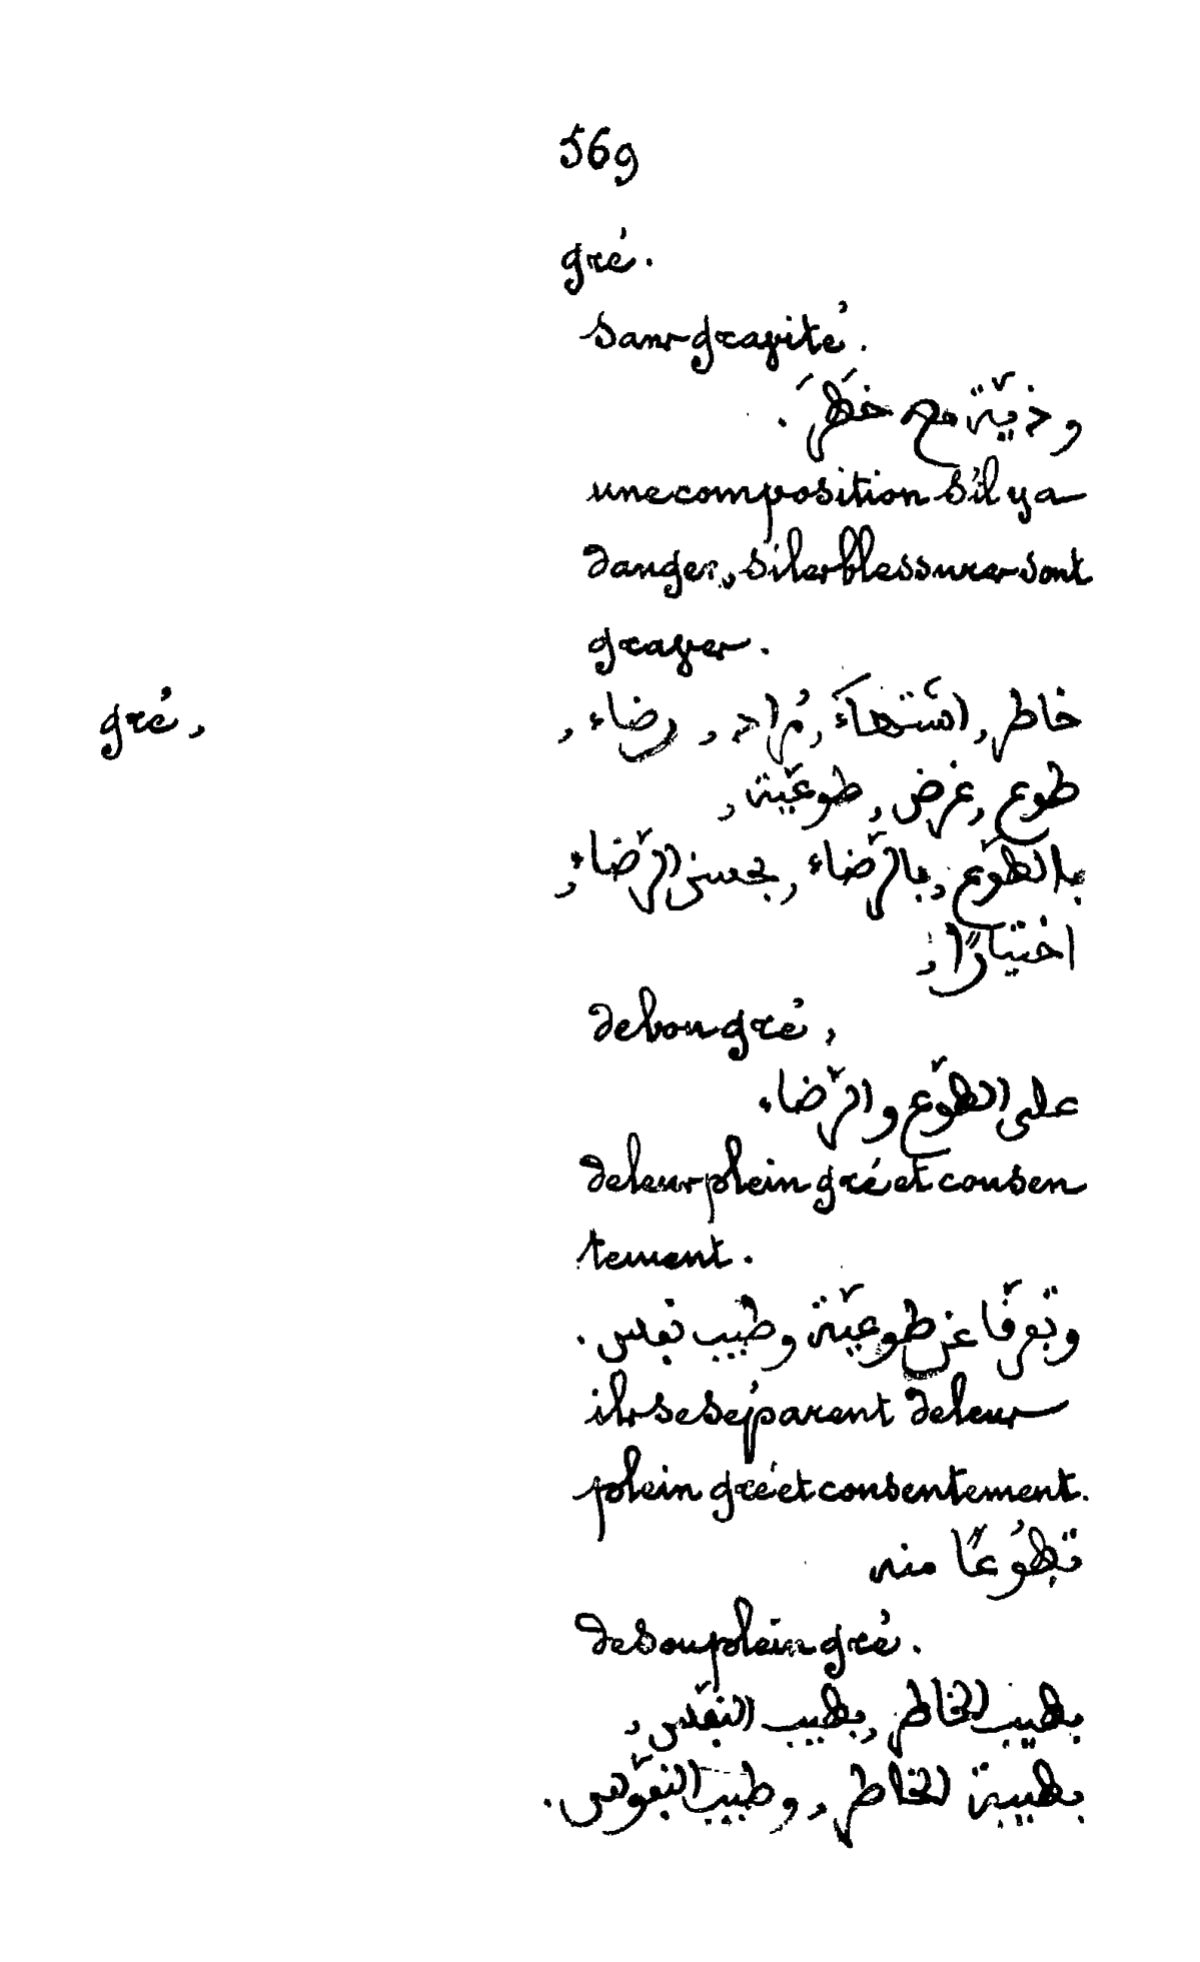 569
gré.
sans gravité.
وذيّة مع خطَرَ.
une composition s'il y a
danger, si les blessures sont
graves.
gré,
خاطر, اشتهاءَ, مُراد, رضاء,
طوع, غرض, طوعيّة,
بالطّوع, بالرّضاء, بحسن الرّضاء,
اختيارًا,
de bon gré,
على الطّوع والرّضاء
de leur plein gré et consen
tement.
وتفرقا عن طوعيّة وطيب نفس.
ils se séparent de leur
plein gré et consentement.
تطوُعًا منه
de son plein gré.
بطيب الخاطر, بطيب النفس,
بطيبة الخاطر, وطيب النفوس.